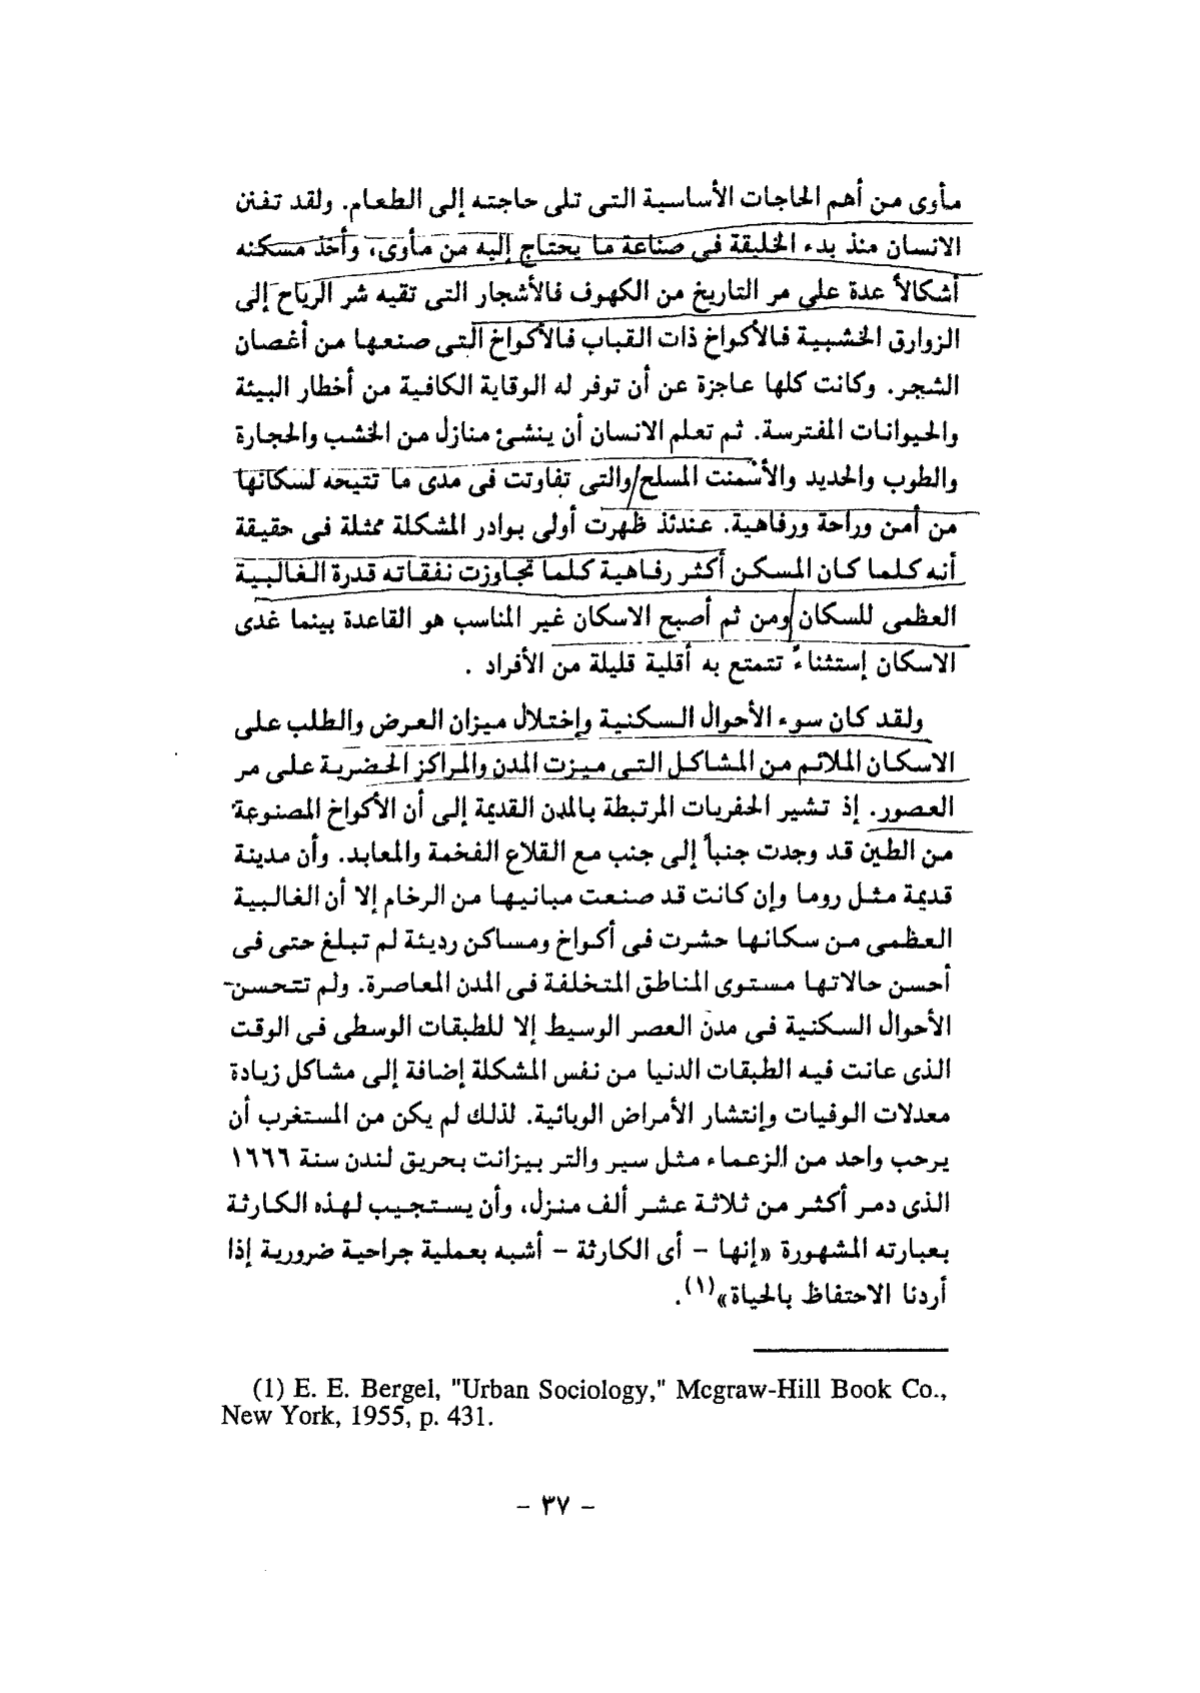 مأوى من أهم الحاجات الأساسية التى تلى حاجته إلى الطعام. ولقد تفنن
الانسان منذ بدء الخليقة فى صناعة ما يحتاج إليه من مأوى، وأخذ مسكنه
أشكالاً عدة على مر التاريخ من الكهوف فالأشجار التى تقيه شر الرياح إلى
الزوارق الخشبية فالأكواخ ذات القباب فالأكواخ التى صنعها من أغصان
الشجر. وكانت كلها عاجزة عن أن توفر له الوقاية الكافية من أخطار البيئة
والحيوانات المفترسة. ثم تعلم الانسان أن ينشئ منازل من الخشب والحجارة
والطوب والحديد والأسمنت المسلح والتى تفاوتت فى مدى ما تتيحه لسكانها
من أمن وراحة ورفاهية. عندئذ ظهرت أولى بوادر المشكلة ممثلة فى حقيقة
أنه كلما كان المسكن أكثر رفاهية كلما تجاوزت نفقاته قدرة الغالبية
العظمى للسكان ومن ثم أصبح الاسكان غير المناسب هو القاعدة بينما غدى
الاسكان إستثناءً تتمتع به أقلية قليلة من الأفراد .
ولقد كان سوء الأحوال السكنية وإختلال ميزان العرض والطلب على
الاسكان الملائم من المشاكل التى ميزت المدن والمراكز الحضرية على مر
العصور. إذ تشير الحفريات المرتبطة بالمدن القديمة إلى أن الأكواخ المصنوعة
من الطين قد وجدت جنباً إلى جنب مع القلاع الفخمة والمعابد. وأن مدينة
قديمة مثل روما وإن كانت قد صنعت مبانيها من الرخام إلا أن الغالبية
العظمى من سكانها حشرت فى أكواخ ومساكن رديئة لم تبلغ حتى فى
أحسن حالاتها مستوى المناطق المتخلفة فى المدن المعاصرة. ولم تتحسن
الأحوال السكنية فى مدن العصر الوسيط إلا للطبقات الوسطى فى الوقت
الذى عانت فيه الطبقات الدنيا من نفس المشكلة إضافة إلى مشاكل زيادة
معدلات الوفيات وإنتشار الأمراض الوبائية. لذلك لم يكن من المستغرب أن
يرحب واحد من الزعماء مثل سير والتر بيزانت بحريق لندن سنة ١٦٦٦
الذى دمر أكثر من ثلاثة عشر ألف منزل، وأن يستجيب لهذه الكارثة
بعبارته المشهورة «إنها - أى الكارثة - أشبه بعملية جراحية ضرورية إذا
أردنا الاحتفاظ بالحياة»(١).
(1) E. E. Bergel, "Urban Sociology," Mcgraw-Hill Book Co.,
New York, 1955, p. 431.
- ٣٧ -